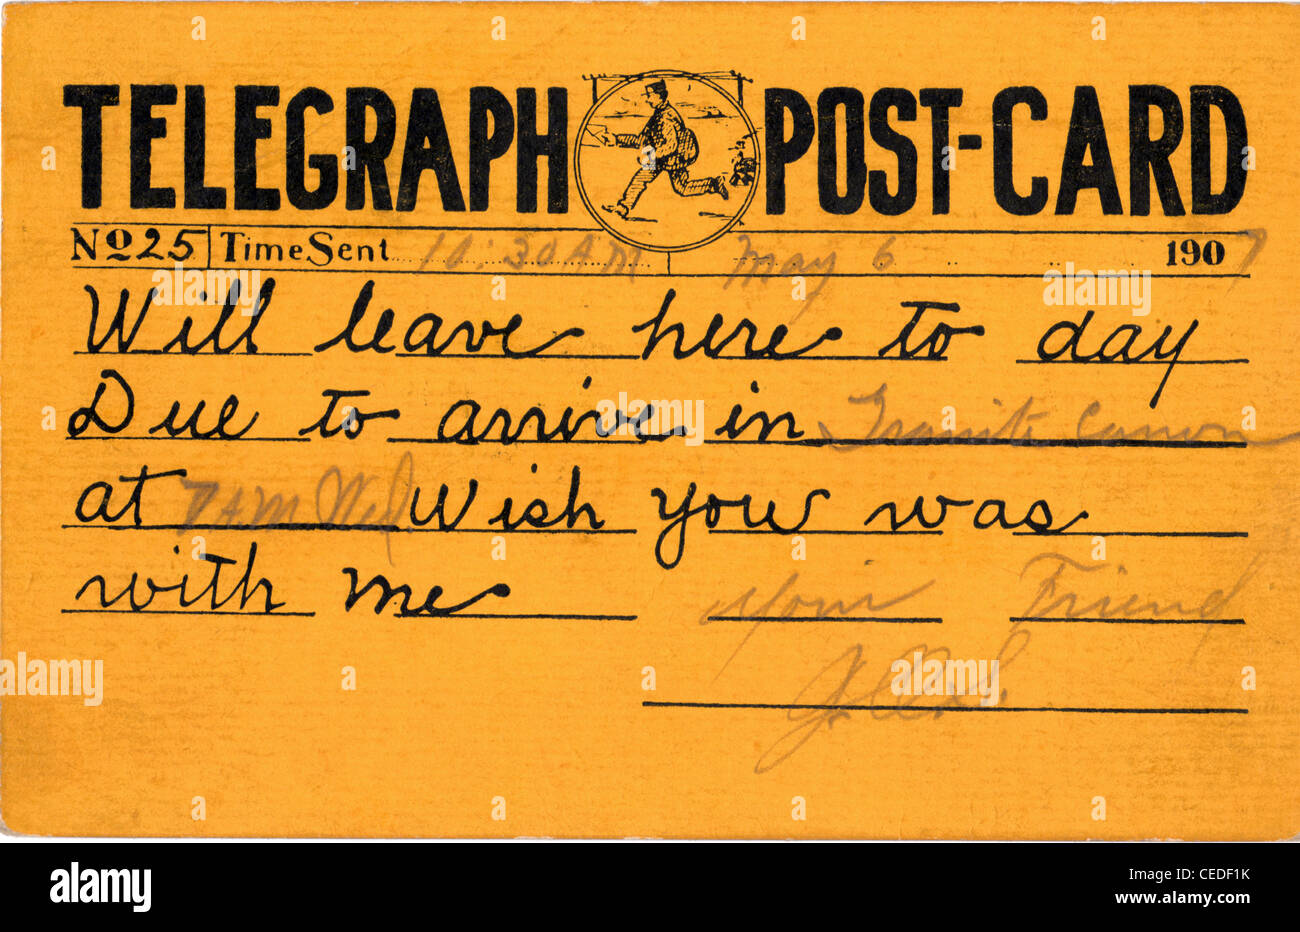 TELEGRAPH POST-CARD
No 25 Time Sent 10:30 AM May 6 1907
Will leave here to day
Due to arrive in Granite Canon
at 7 AM Wed Wish you was
with me Your Friend
alamy
Image ID: CEDF1K
www.alamy.com